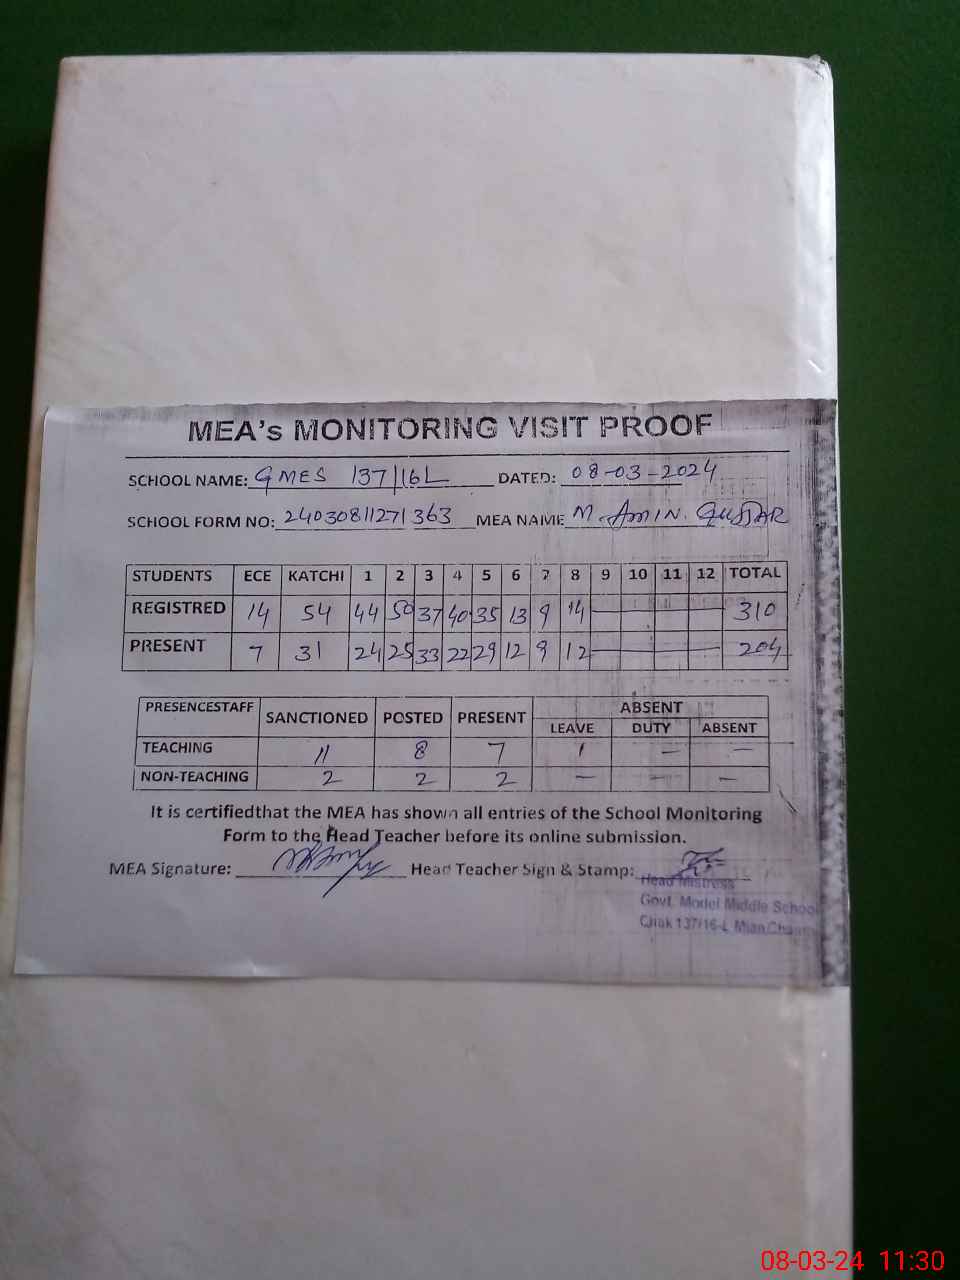 MEA's MONITORING VISIT PROOF
SCHOOL NAME: GMES 137/16L DATED: 08-03-2024
SCHOOL FORM NO: 24030811271363 MEA NAME M. AMIN. GUJJAR
STUDENTS ECE KATCHI 1 2 3 4 5 6 7 8 9 10 11 12 TOTAL
REGISTRED 14 54 44 50 37 40 35 13 9 14 310
PRESENT 7 31 24 25 33 22 29 12 9 12 204
PRESENCESTAFF SANCTIONED POSTED PRESENT ABSENT
LEAVE DUTY ABSENT
TEACHING 11 8 7 1 — —
NON-TEACHING 2 2 2 — — —
It is certifiedthat the MEA has shown all entries of the School Monitoring
Form to the Head Teacher before its online submission.
MEA Signature: Head Teacher Sign & Stamp:
Head Mistress
Govt. Model Middle School
Chak 137/16-L Mian
08-03-24 11:30